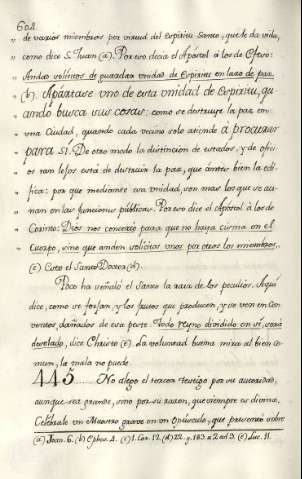 604
" de varios miembros por virtud del Espiritu Santo, que le da vida,
" como dice S. Juan (a). Por eso decia el Apóstol á los de Efeso:
" Sended solícitos de guardar unidad de Espiritu en lazo de paz.
" (b). Apártase uno de esta unidad de Espiritu, qu-
" ando busca sus cosas: como se destruye la paz en
" una Ciudad, quando cada vecino solo atiende á procurar
" para si. De otro modo la distincion de estados, y de ofici
" os tan lejos esta de destruir la paz, que antes bien la edi
" fica: por que mediante esa unidad, son mas los que se au-
" nan en las funciones públicas. Por eso dice el Apóstol á los de
" Corinto: Dios nos concertó para que no haya cisma en el
" Cuerpo, sino que anden solícitos unos por otros los miembros.
(c) Este el Santo Doctor (d).
Poco ha señaló el Santo la raiz de los peculios. Aqui
dice, como se forjan, y los frutos que producen, y se ven en Con
ventos, dañados de esa peste. Todo Reyno dividido en si, será
desolado, dice Christo (e). La voluntad buena mira al bien co-
mun, la mala no puede.
445 No alego el tercer testigo por su autoridad,
aunque sea grande, sino por su razon, que siempre es divina.
Celébralo un Maestro grave en un Opúsculo, que presentó sobre
(a) Joan. 6. (b) Ephes. 4. (c) 1. Cor. 12. (d) 22. q. 183. a 2 ad 3. (e) Luc. 11.